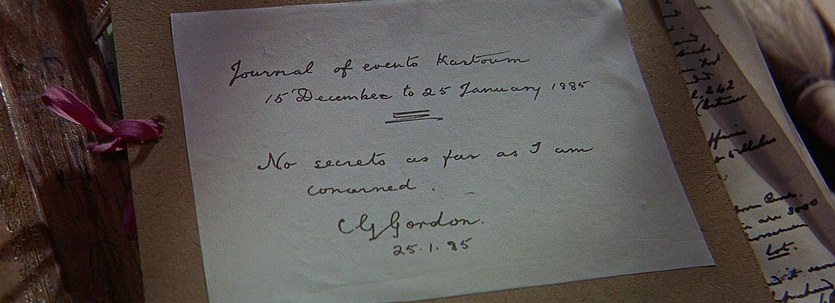 Journal of events Kartoum
15 December to 25 January 1885
No secrets as far as I am
concerned.
CGGordon.
25.1.85
3000